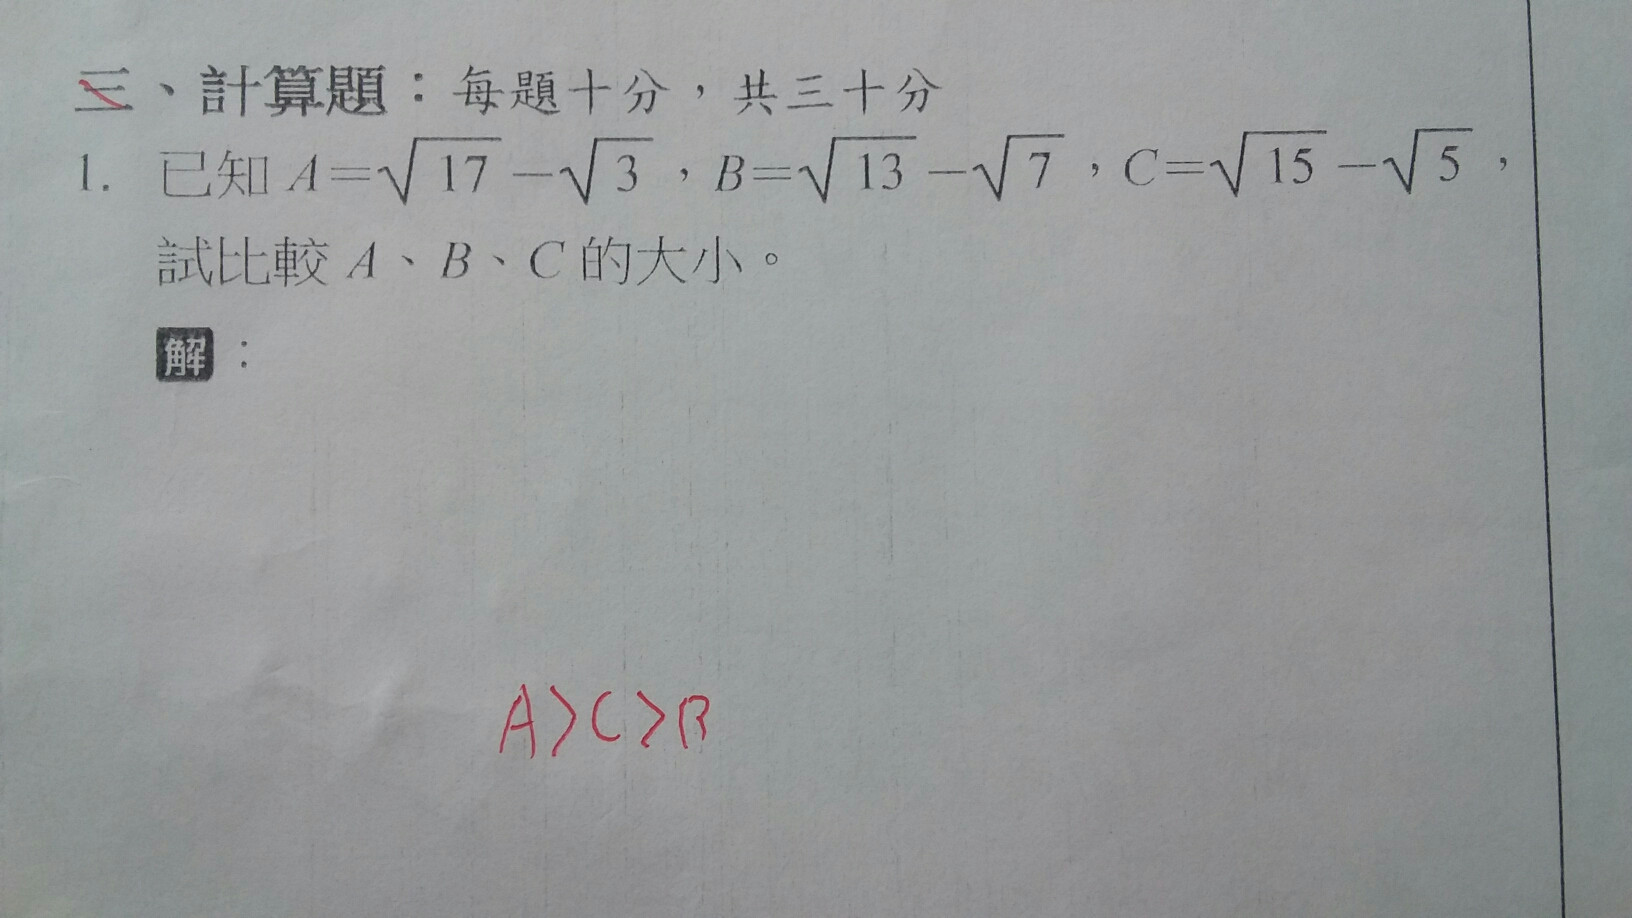 三、計算題：每題十分，共三十分
1. 已知 A=√17−√3，B=√13−√7，C=√15−√5，
試比較 A、B、C 的大小。
解：
A>C>B